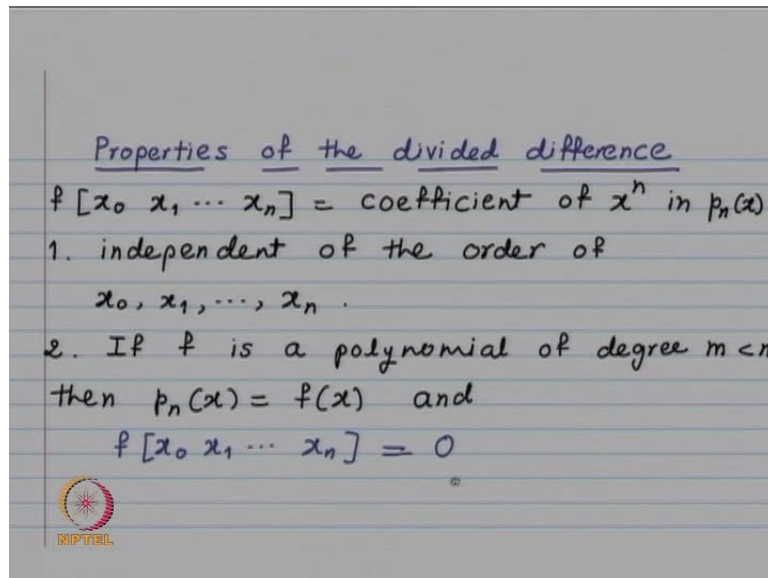 Properties of the divided difference
f [x₀ x₁ ⋯ xₙ] = coefficient of xⁿ in pₙ(x)
1. independent of the order of
x₀, x₁, ⋯, xₙ .
2. If f is a polynomial of degree m < n
then pₙ(x) = f(x) and
f [x₀ x₁ ⋯ xₙ] = 0
NPTEL